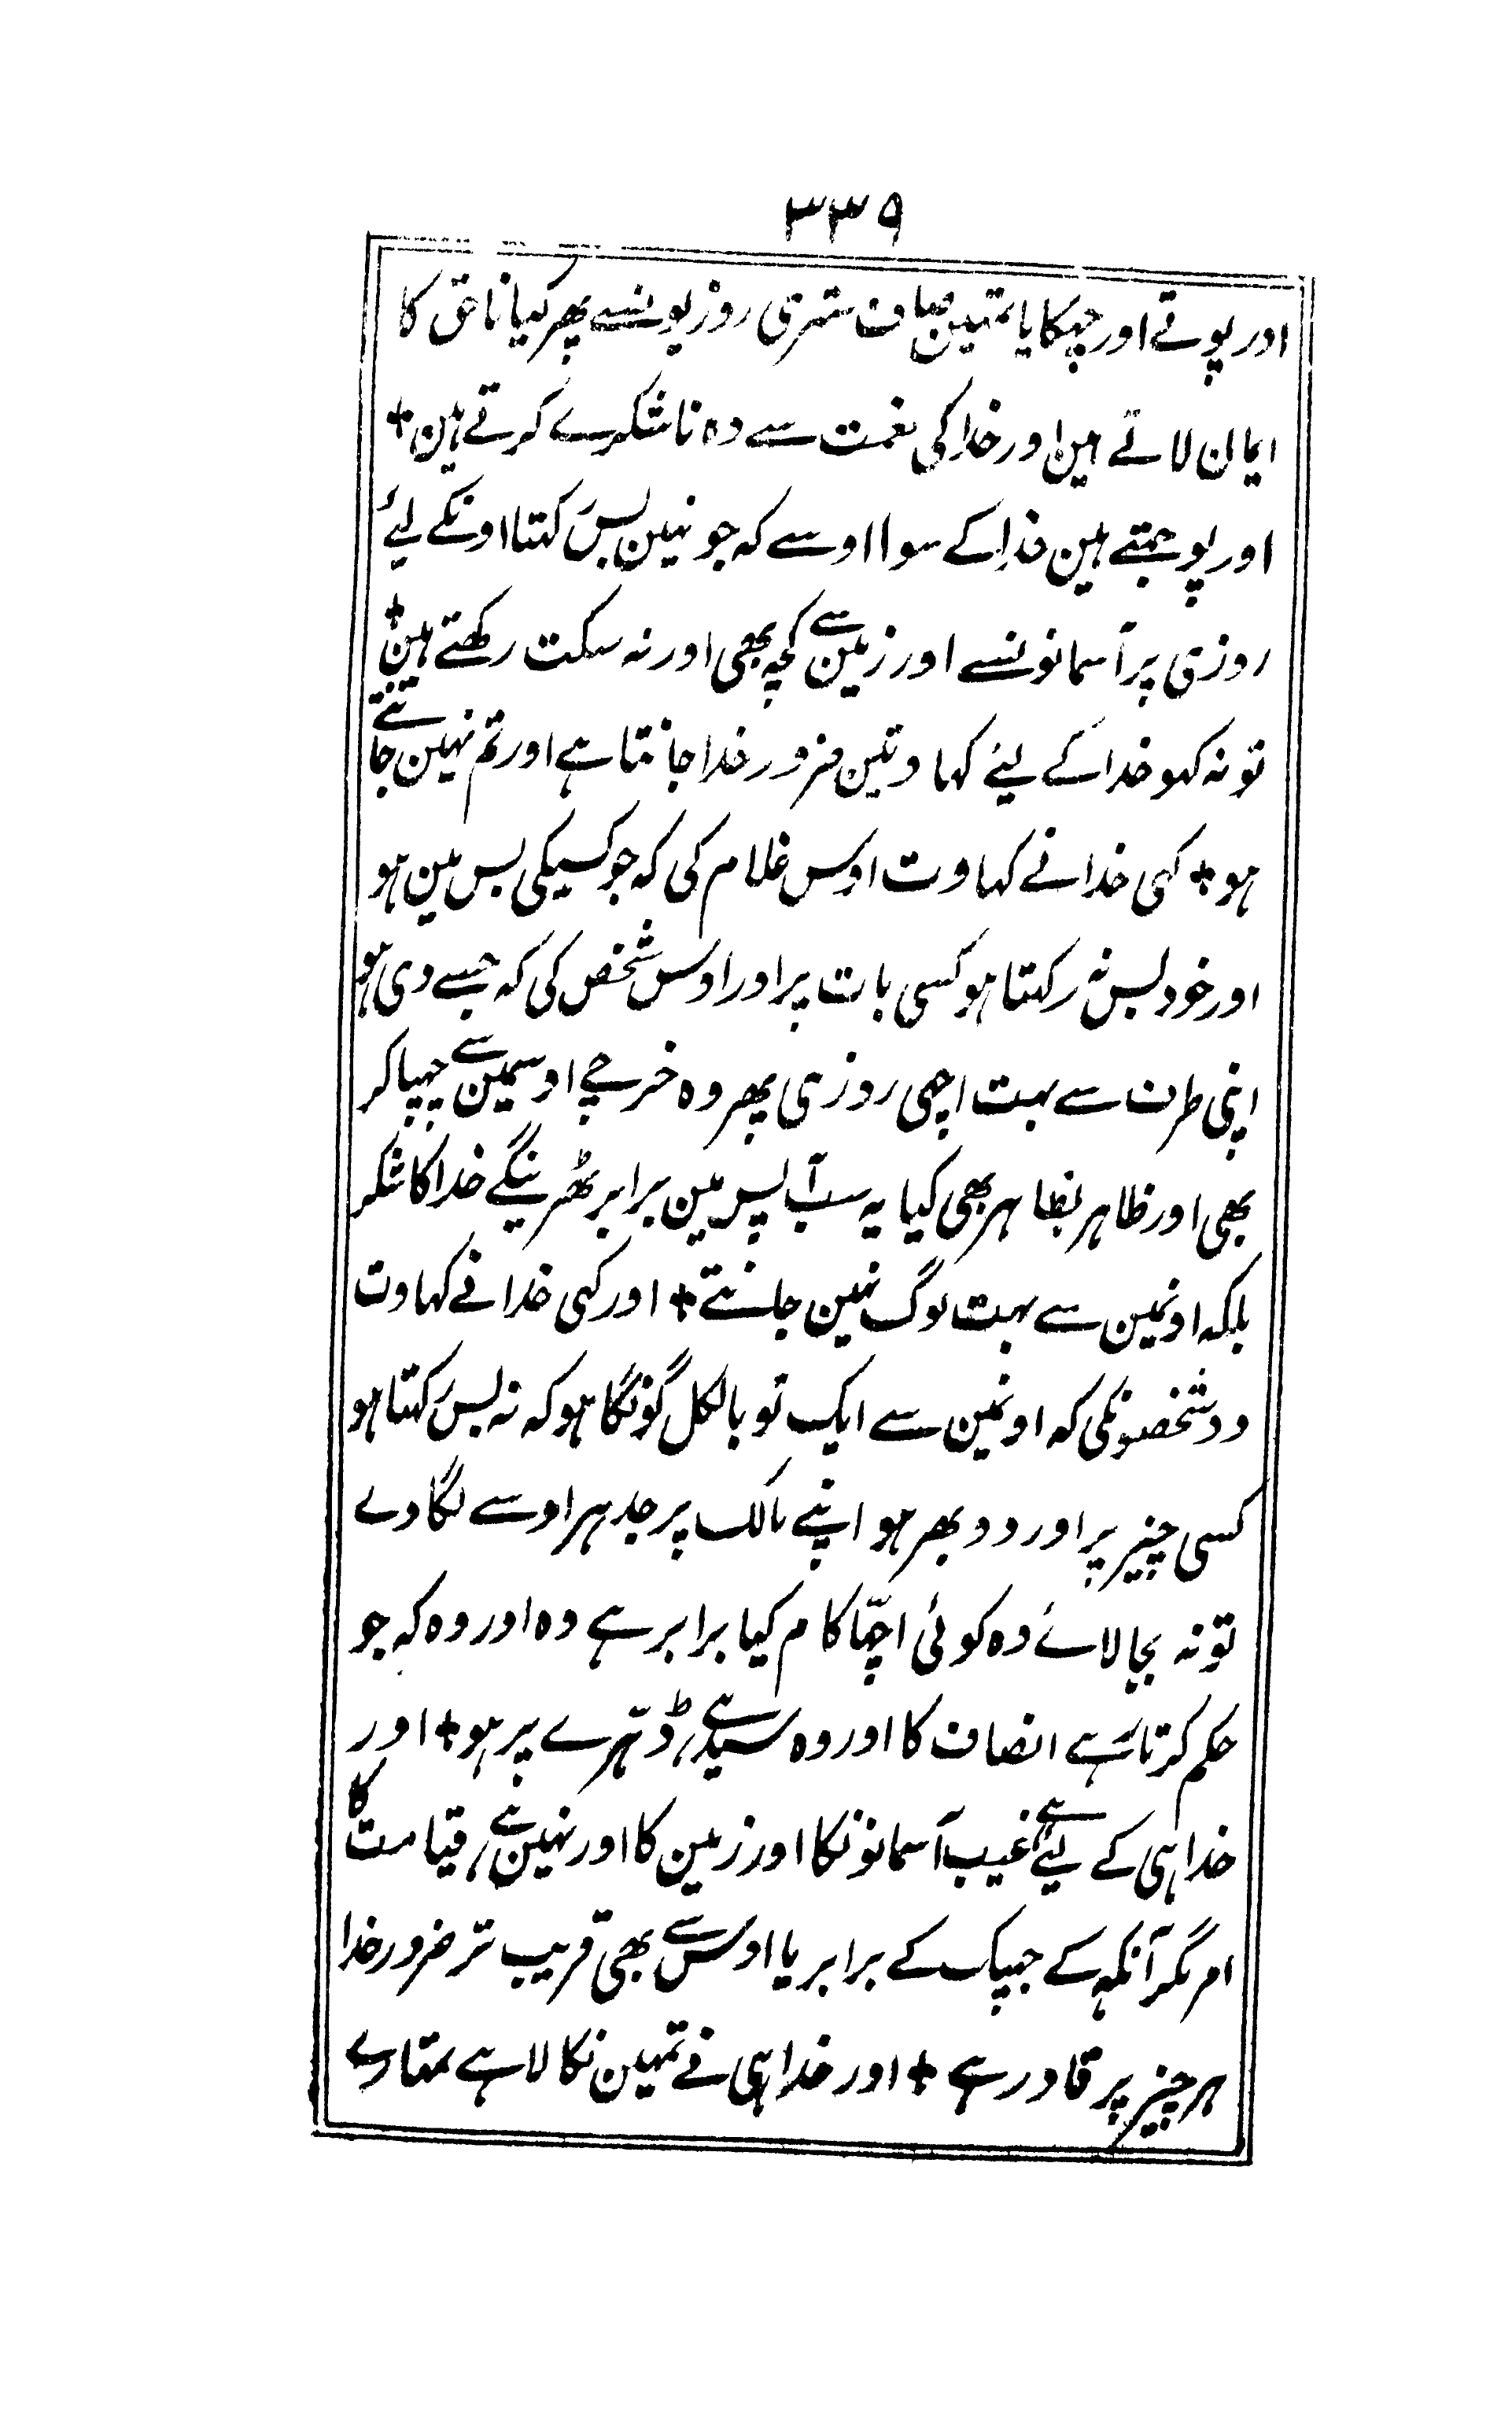 ۳۳۹
اور پوتے اور چھکایا تمہین صاف ستھری روزیونسے پھر کیا ناحق کا
ایمان لاتے ہین اور خدا کی نعمت سے وہ ناشکرے کرتے ہین +
اور پوجتے ہین خدا کے سوا اوسے کہ جو نہین بس رکہتا اونکے لیئے
روزی پر آسمانونسے اور زمین سے کچہ بھی اور نہ سکت رکھتے ہین +
تو نہ کہو خدا کے لیئے کہاوتین ضرور خدا جانتا ہے اور تم نہین جانتے
ہو + کہی خدا نے کہاوت اوس غلام کی کہ جو کسیکی بس مین ہو
اور خود بس نہ رکہتا ہو کسی بات پر اور اوس شخص کی کہ جسے دی ہو
اپنی طرف سے بہت اچھی روزی پھر وہ خرچے اوسمین سے چھپا کر
بھی اور ظاہر بظاہر بھی کیا یہ سب آپس مین برابر ٹھرینگے خدا کا شکر
بلکہ اونمین سے بہت لوگ نہین جانتے + اور کہی خدا نے کہاوت
دو شخصونکی کہ اونمین سے ایک تو بالکل گونگا ہو کہ نہ بس رکہتا ہو
کسی چیز پر اور دوبھر ہو اپنے مالک پر جدہر اوسے لگا دے
تو نہ بجا لائے وہ کوئی اچھا کام کیا برابر ہے وہ اور وہ کہ جو
حکم کرتا ہے انصاف کا اور وہ سیدھے ڈہرے پر ہو + اور
خدا ہی کے لیئے ہے غیب آسمانونکا اور زمین کا اور نہین ہے قیامت کا
امر مگر آنکہہ کے جہپک کے برابر یا اوس سے بھی قریب تر ضرور خدا
ہر چیز پر قادر ہے + اور خدا ہی نے تمہین نکالا ہے تمھارے